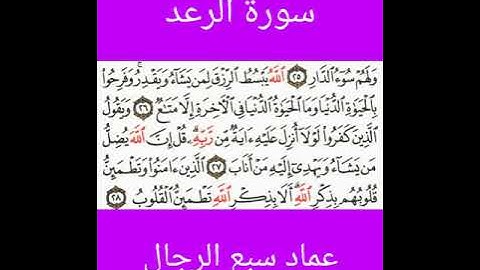 سورة الرعد
وَلَهُمْ سُوٓءُ ٱلدَّارِ ٢٥ ٱللَّهُ يَبْسُطُ ٱلرِّزْقَ لِمَن يَشَآءُ وَيَقْدِرُ ۚ وَفَرِحُوا۟
بِٱلْحَيَوٰةِ ٱلدُّنْيَا وَمَا ٱلْحَيَوٰةُ ٱلدُّنْيَا فِى ٱلْـَٔاخِرَةِ إِلَّا مَتَـٰعٌ ٢٦ وَيَقُولُ
ٱلَّذِينَ كَفَرُوا۟ لَوْلَآ أُنزِلَ عَلَيْهِ ءَايَةٌ مِّن رَّبِّهِۦ ۗ قُلْ إِنَّ ٱللَّهَ يُضِلُّ
مَن يَشَآءُ وَيَهْدِىٓ إِلَيْهِ مَنْ أَنَابَ ٢٧ ٱلَّذِينَ ءَامَنُوا۟ وَتَطْمَئِنُّ
قُلُوبُهُم بِذِكْرِ ٱللَّهِ ۗ أَلَا بِذِكْرِ ٱللَّهِ تَطْمَئِنُّ ٱلْقُلُوبُ ٢٨
عماد سبع الرجال